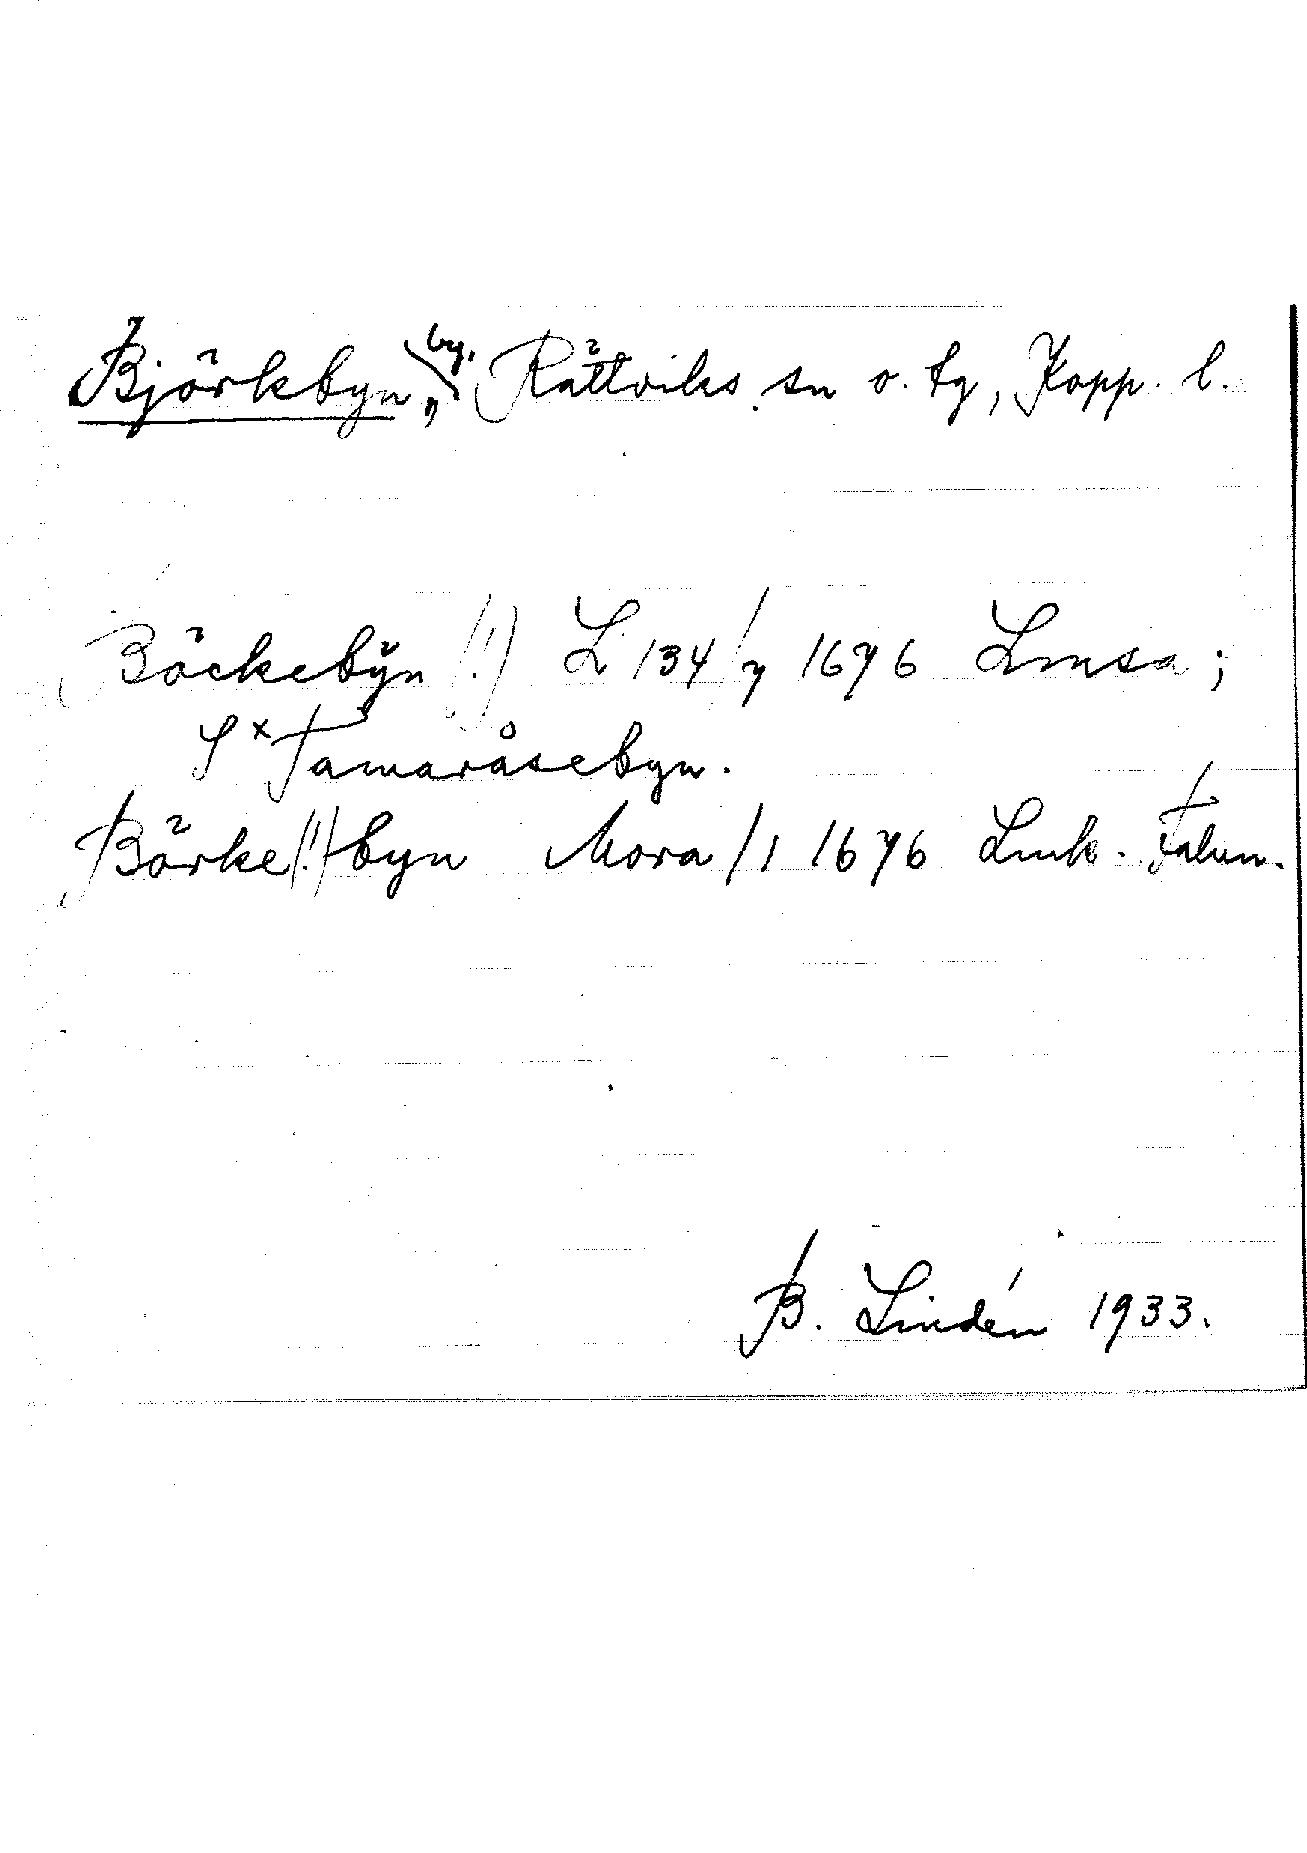 Björkbyn, by, Rättviks sn o. tg, Kopp. l.
Böckebÿn (!) L 134/7 1676 Lmsa;
S × Tamaråsebyn.
Börke(!)byn Mora /1 1676 Lmk. Falun.
B. Lindén 1933.